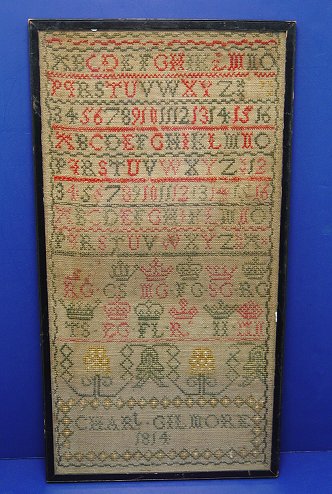 ABCDEFGHIKLMNO
PQRSTUVWXYZ
3 4 5 6 7 8 9 10 11 12 13 14 15 16
ABCDEFGHIKLMNO
PQRSTUVWXYZ 12
3 4 5 6 7 8 9 10 11 12 13 14 15 16
ABCDEFGHIKLMNO
PQRSTUVWXYZ
RG CS MG FG SG RG
TS FL
CHARL · GILMORE
1814